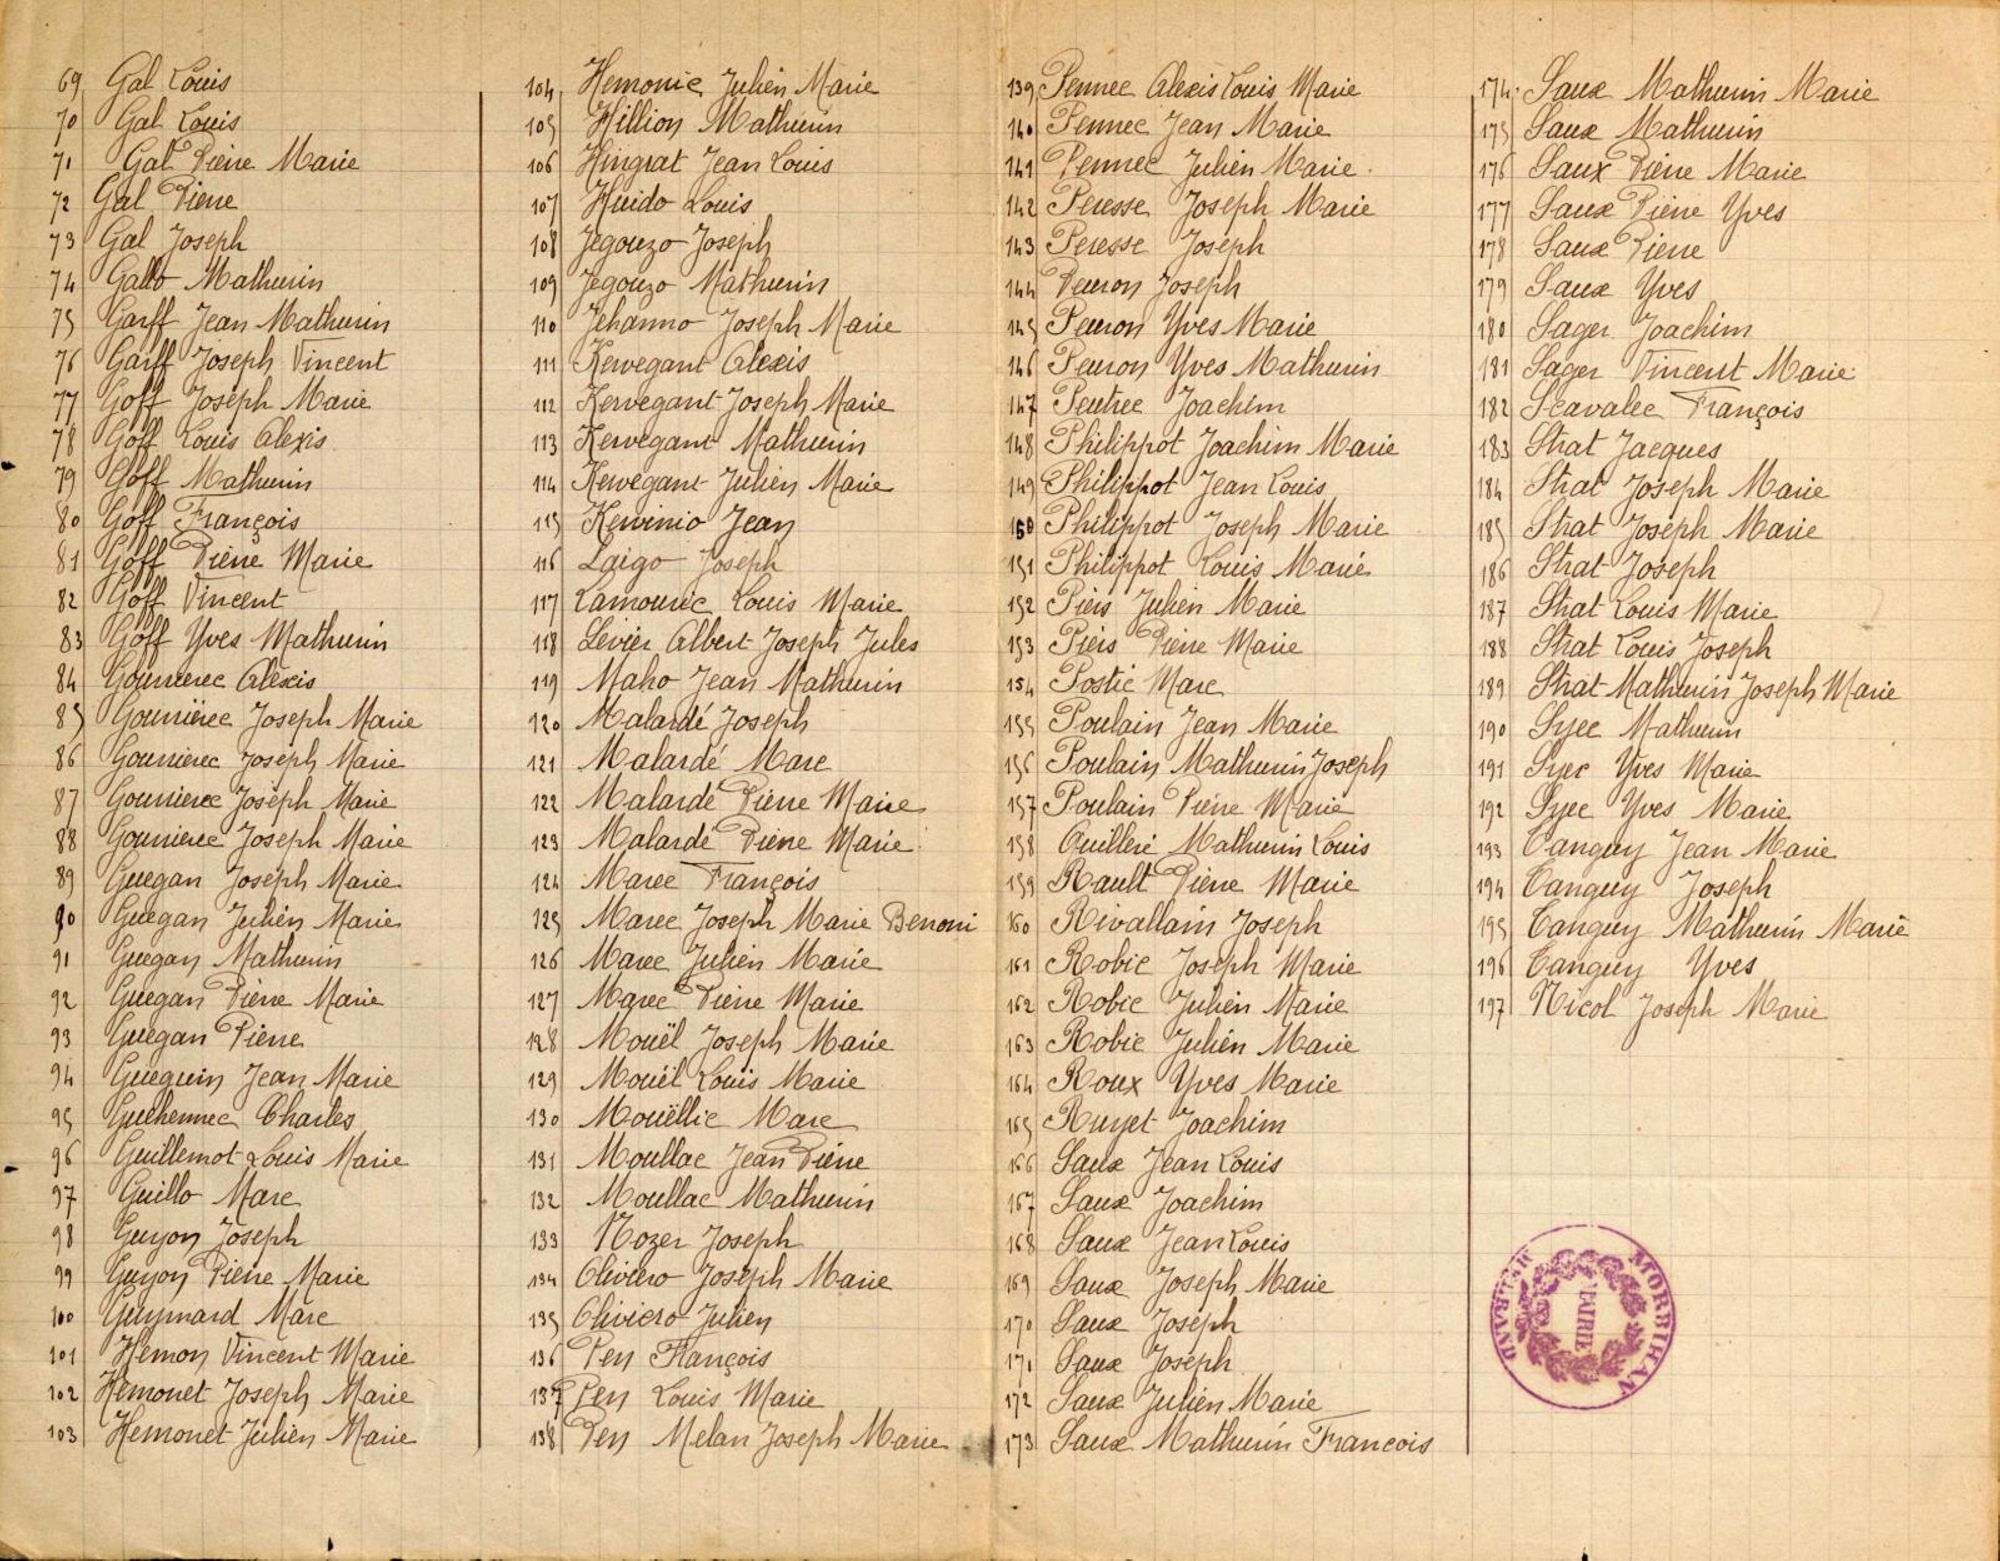 69 Gal Louis
70 Gal Louis
71 Gal Pierre Marie
72 Gal Pierre
73 Gal Joseph
74 Gallo Mathurin
75 Garff Jean Mathurin
76 Garff Joseph Vincent
77 Goff Joseph Marie
78 Goff Louis Alexis
79 Goff Mathurin
80 Goff François
81 Goff Pierre Marie
82 Goff Vincent
83 Goff Yves Mathurin
84 Gourrierec Alexis
85 Gourrierec Joseph Marie
86 Gourrierec Joseph Marie
87 Gourrierec Joseph Marie
88 Gourrierec Joseph Marie
89 Guegan Joseph Marie
90 Guegan Julien Marie
91 Guegan Mathurin
92 Guegan Pierre Marie
93 Guegan Pierre
94 Gueguin Jean Marie
95 Guehennec Charles
96 Guillemot Louis Marie
97 Guillo Marc
98 Guyon Joseph
99 Guyon Pierre Marie
100 Guymard Marc
101 Hemon Vincent Marie
102 Hemonet Joseph Marie
103 Hemonet Julien Marie
104 Hemonic Julien Marie
105 Hillion Mathurin
106 Hingrat Jean Louis
107 Huido Louis
108 Jegouzo Joseph
109 Jegouzo Mathurin
110 Jehanno Joseph Marie
111 Kervegant Alexis
112 Kervegant Joseph Marie
113 Kervegant Mathurin
114 Kervegant Julien Marie
115 Kervinio Jean
116 Laigo Joseph
117 Lamouric Louis Marie
118 Levier Albert Joseph Jules
119 Maho Jean Mathurin
120 Malardé Joseph
121 Malardé Marc
122 Malardé Pierre Marie
123 Malardé Pierre Marie
124 Marec François
125 Marec Joseph Marie Benoni
126 Marec Julien Marie
127 Marec Pierre Marie
128 Mouël Joseph Marie
129 Mouël Louis Marie
130 Mouëllic Marc
131 Moullac Jean Pierre
132 Moullac Mathurin
133 Nozer Joseph
134 Oliviero Joseph Marie
135 Oliviero Julien
136 Pen François
137 Pen Louis Marie
138 Pen Melan Joseph Marie
139 Pennec Alexis Louis Marie
140 Pennec Jean Marie
141 Pennec Julien Marie
142 Peresse Joseph Marie
143 Peresse Joseph
144 Peuron Joseph
145 Peuron Yves Marie
146 Peuron Yves Mathurin
147 Peutrec Joachim
148 Philippot Joachim Marie
149 Philippot Jean Louis
150 Philippot Joseph Marie
151 Philippot Louis Marie
152 Piers Julien Marie
153 Piers Pierre Marie
154 Postic Marc
155 Poulain Jean Marie
156 Poulain Mathurin Joseph
157 Poulain Pierre Marie
158 Quilleré Mathurin Louis
159 Rault Pierre Marie
160 Rivallain Joseph
161 Robic Joseph Marie
162 Robic Julien Marie
163 Robic Julien Marie
164 Roux Yves Marie
165 Ruyet Joachim
166 Saux Jean Louis
167 Saux Joachim
168 Saux Jean Louis
169 Saux Joseph Marie
170 Saux Joseph
171 Saux Joseph
172 Saux Julien Marie
173 Saux Mathurin François
174 Saux Mathurin Marie
175 Saux Mathurin
176 Saux Pierre Marie
177 Saux Pierre Yves
178 Saux Pierre
179 Saux Yves
180 Sager Joachim
181 Sager Vincent Marie
182 Scavalec François
183 Strat Jacques
184 Strat Joseph Marie
185 Strat Joseph Marie
186 Strat Joseph
187 Strat Louis Marie
188 Strat Louis Joseph
189 Strat Mathurin Joseph Marie
190 Syec Mathurin
191 Syec Yves Marie
192 Syec Yves Marie
193 Tanguy Jean Marie
194 Tanguy Joseph
195 Tanguy Mathurin Marie
196 Tanguy Yves
197 Nicol Joseph Marie
MORBIHAN
MAIRIE